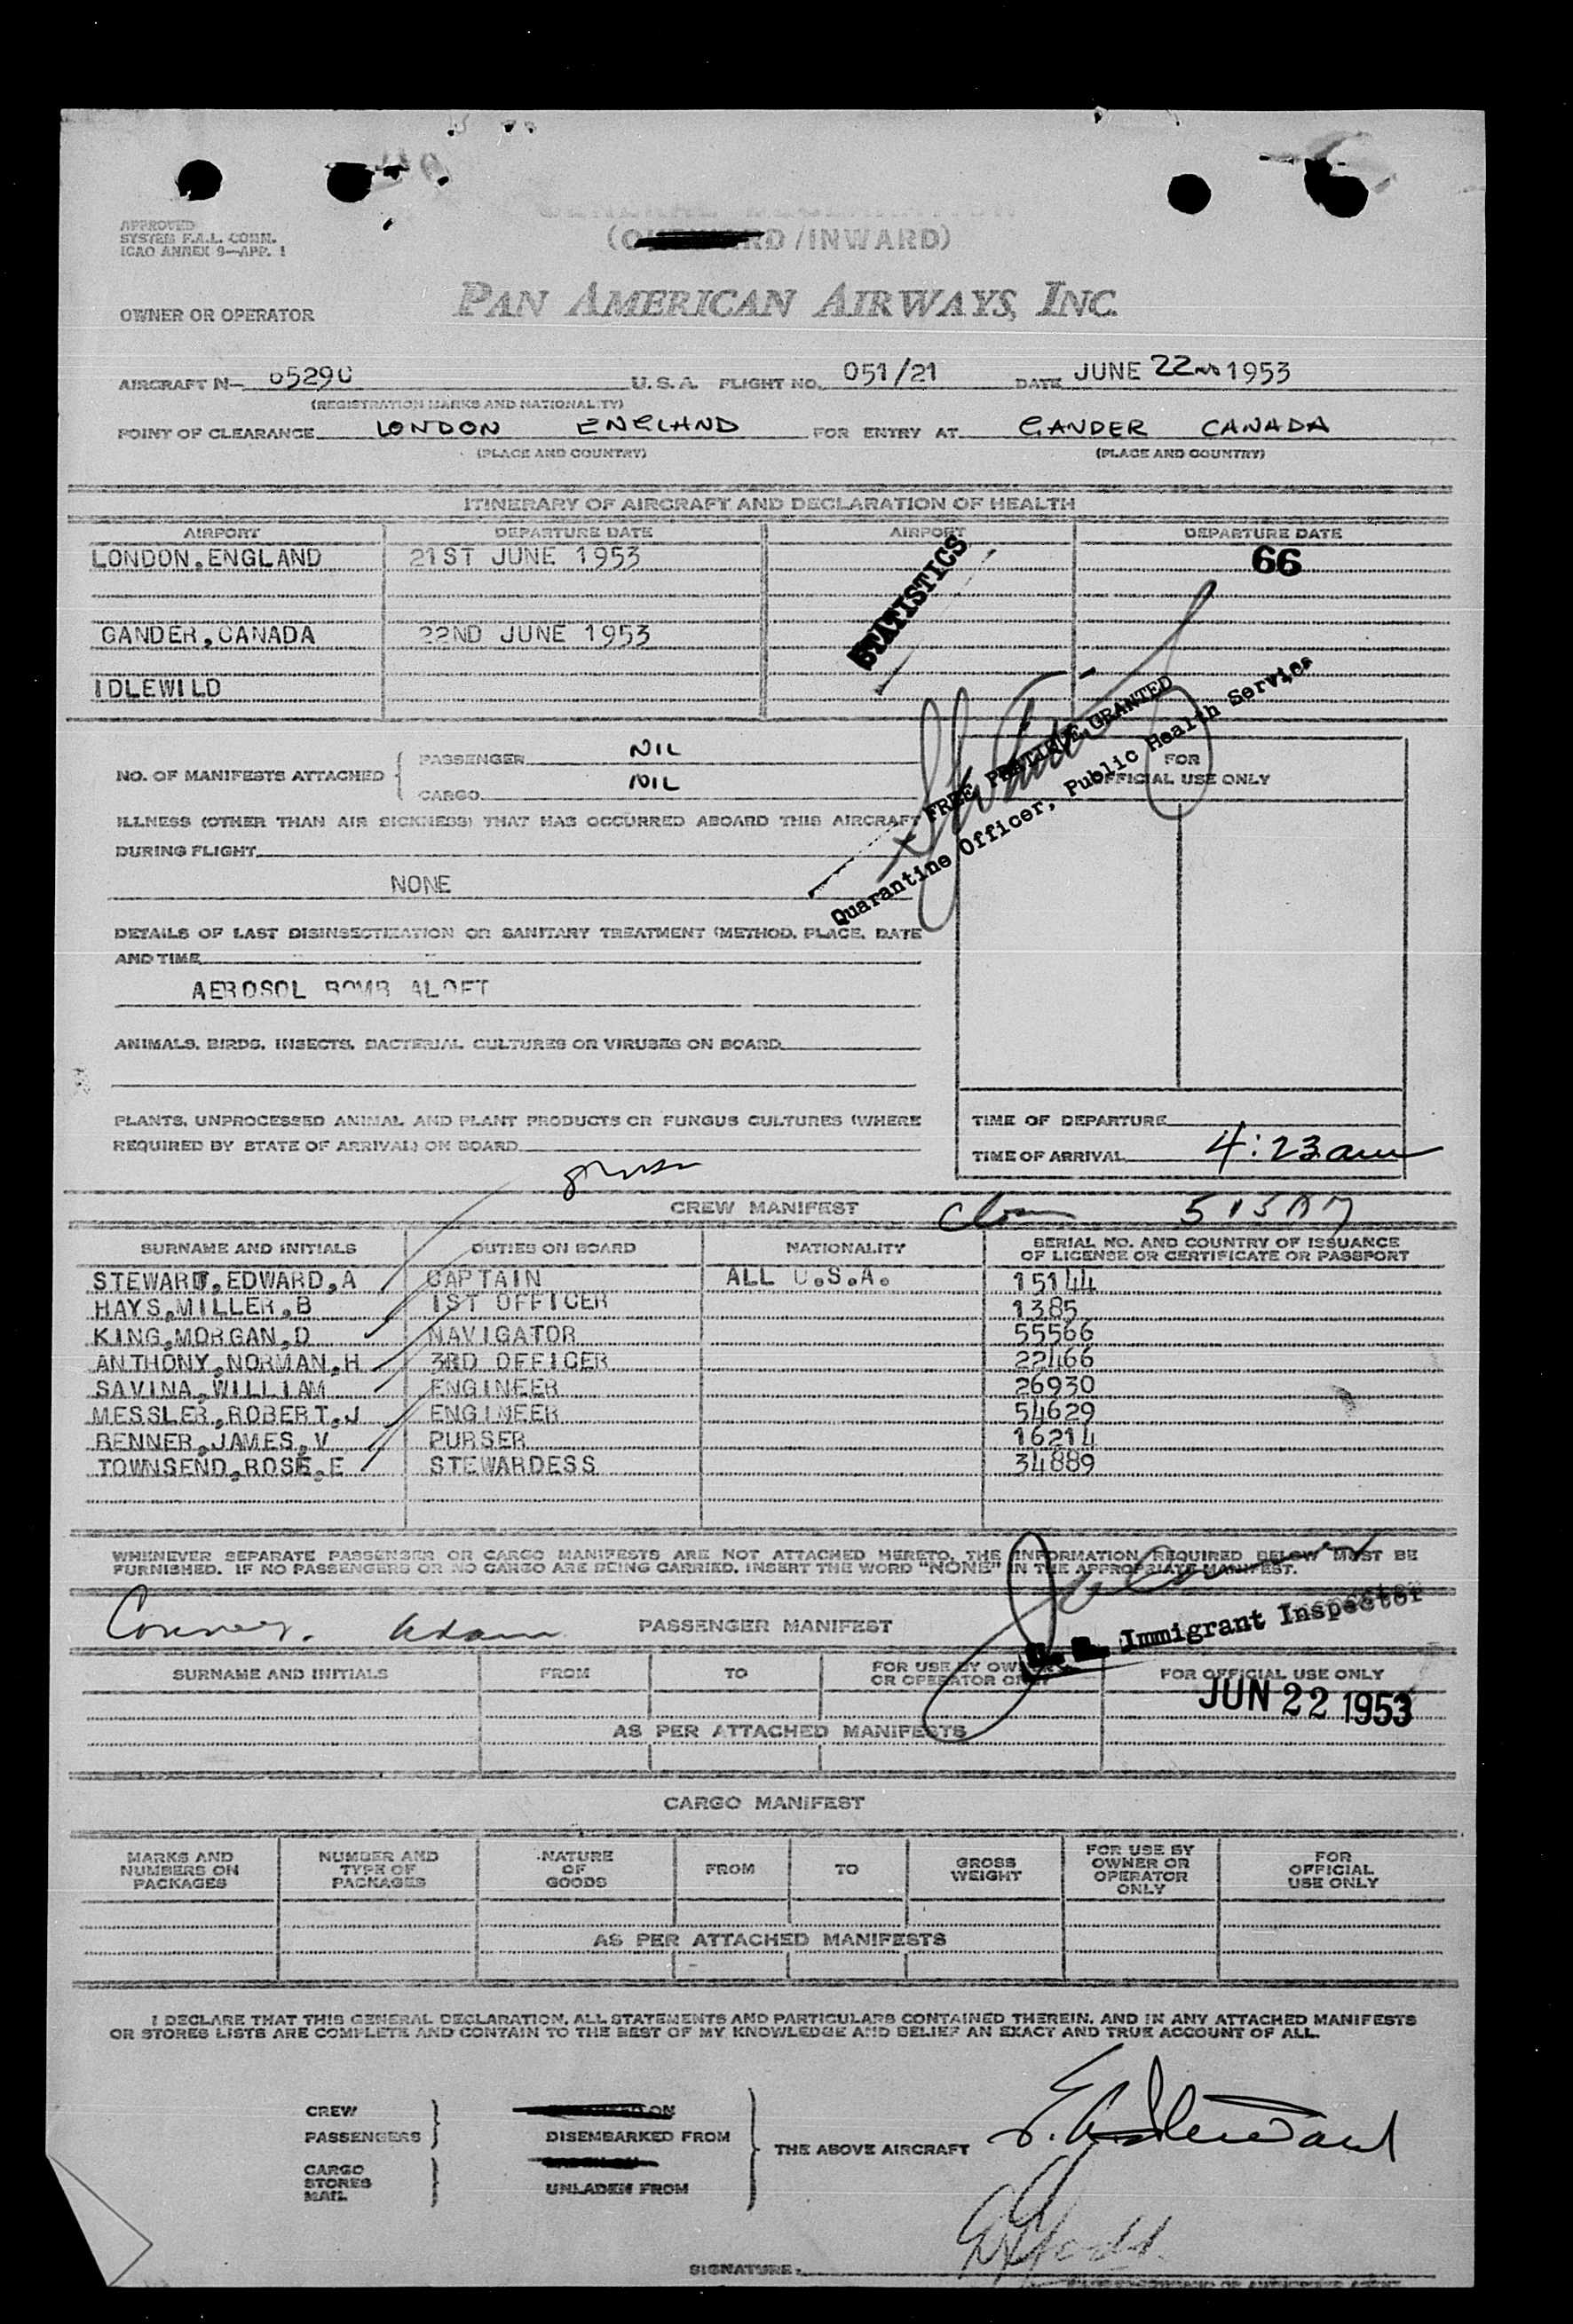 APPROVED
SYSTEM F.A.L. COMM.
ICAO ANNEX 9—APP. 1
GENERAL DECLARATION
(OUTWARD/INWARD)
OWNER OR OPERATOR PAN AMERICAN AIRWAYS, INC.
AIRCRAFT N— 65290 U.S.A. FLIGHT NO. 051/21 DATE JUNE 22ND 1953
(REGISTRATION MARKS AND NATIONALITY)
POINT OF CLEARANCE LONDON ENGLAND FOR ENTRY AT GANDER CANADA
(PLACE AND COUNTRY) (PLACE AND COUNTRY)
ITINERARY OF AIRCRAFT AND DECLARATION OF HEALTH
AIRPORT DEPARTURE DATE AIRPORT DEPARTURE DATE
LONDON,ENGLAND 21ST JUNE 1953 66
STATISTICS
GANDER,CANADA 22ND JUNE 1953
IDLEWILD
FREE PRATIQUE GRANTED
Quarantine Officer, Public Health Service
NO. OF MANIFESTS ATTACHED { PASSENGER NIL
CARGO NIL
FOR
OFFICIAL USE ONLY
ILLNESS (OTHER THAN AIR SICKNESS) THAT HAS OCCURRED ABOARD THIS AIRCRAFT
DURING FLIGHT
NONE
DETAILS OF LAST DISINSECTIZATION OR SANITARY TREATMENT (METHOD, PLACE, DATE
AND TIME
AEROSOL BOMB ALOFT
ANIMALS, BIRDS, INSECTS, BACTERIAL CULTURES OR VIRUSES ON BOARD
PLANTS, UNPROCESSED ANIMAL AND PLANT PRODUCTS OR FUNGUS CULTURES (WHERE
REQUIRED BY STATE OF ARRIVAL) ON BOARD
TIME OF DEPARTURE
TIME OF ARRIVAL 4:23 am
CREW MANIFEST
SURNAME AND INITIALS DUTIES ON BOARD NATIONALITY SERIAL NO. AND COUNTRY OF ISSUANCE
OF LICENSE OR CERTIFICATE OR PASSPORT
STEWART,EDWARD,A CAPTAIN ALL U.S.A. 15144
HAYS,MILLER,B 1ST OFFICER 1385
KING,MORGAN,D NAVIGATOR 55566
ANTHONY,NORMAN,H 3RD OFFICER 22466
SAVINA,WILLIAM ENGINEER 26930
MESSLER,ROBERT,J ENGINEER 54629
RENNER,JAMES,V PURSER 16214
TOWNSEND,ROSE,E STEWARDESS 34889
WHENEVER SEPARATE PASSENGER OR CARGO MANIFESTS ARE NOT ATTACHED HERETO, THE INFORMATION REQUIRED BELOW MUST BE
FURNISHED. IF NO PASSENGERS OR NO CARGO ARE BEING CARRIED, INSERT THE WORD "NONE" IN THE APPROPRIATE MANIFEST.
PASSENGER MANIFEST
Immigrant Inspector
SURNAME AND INITIALS FROM TO FOR USE BY OWNER
OR OPERATOR ONLY FOR OFFICIAL USE ONLY
JUN 22 1953
AS PER ATTACHED MANIFESTS
CARGO MANIFEST
MARKS AND
NUMBERS ON
PACKAGES NUMBER AND
TYPE OF
PACKAGES NATURE
OF
GOODS FROM TO GROSS
WEIGHT FOR USE BY
OWNER OR
OPERATOR
ONLY FOR
OFFICIAL
USE ONLY
AS PER ATTACHED MANIFESTS
I DECLARE THAT THIS GENERAL DECLARATION, ALL STATEMENTS AND PARTICULARS CONTAINED THEREIN, AND IN ANY ATTACHED MANIFESTS
OR STORES LISTS ARE COMPLETE AND CONTAIN TO THE BEST OF MY KNOWLEDGE AND BELIEF AN EXACT AND TRUE ACCOUNT OF ALL.
CREW
PASSENGERS DISEMBARKED FROM
THE ABOVE AIRCRAFT
CARGO
STORES
MAIL UNLADEN FROM
SIGNATURE